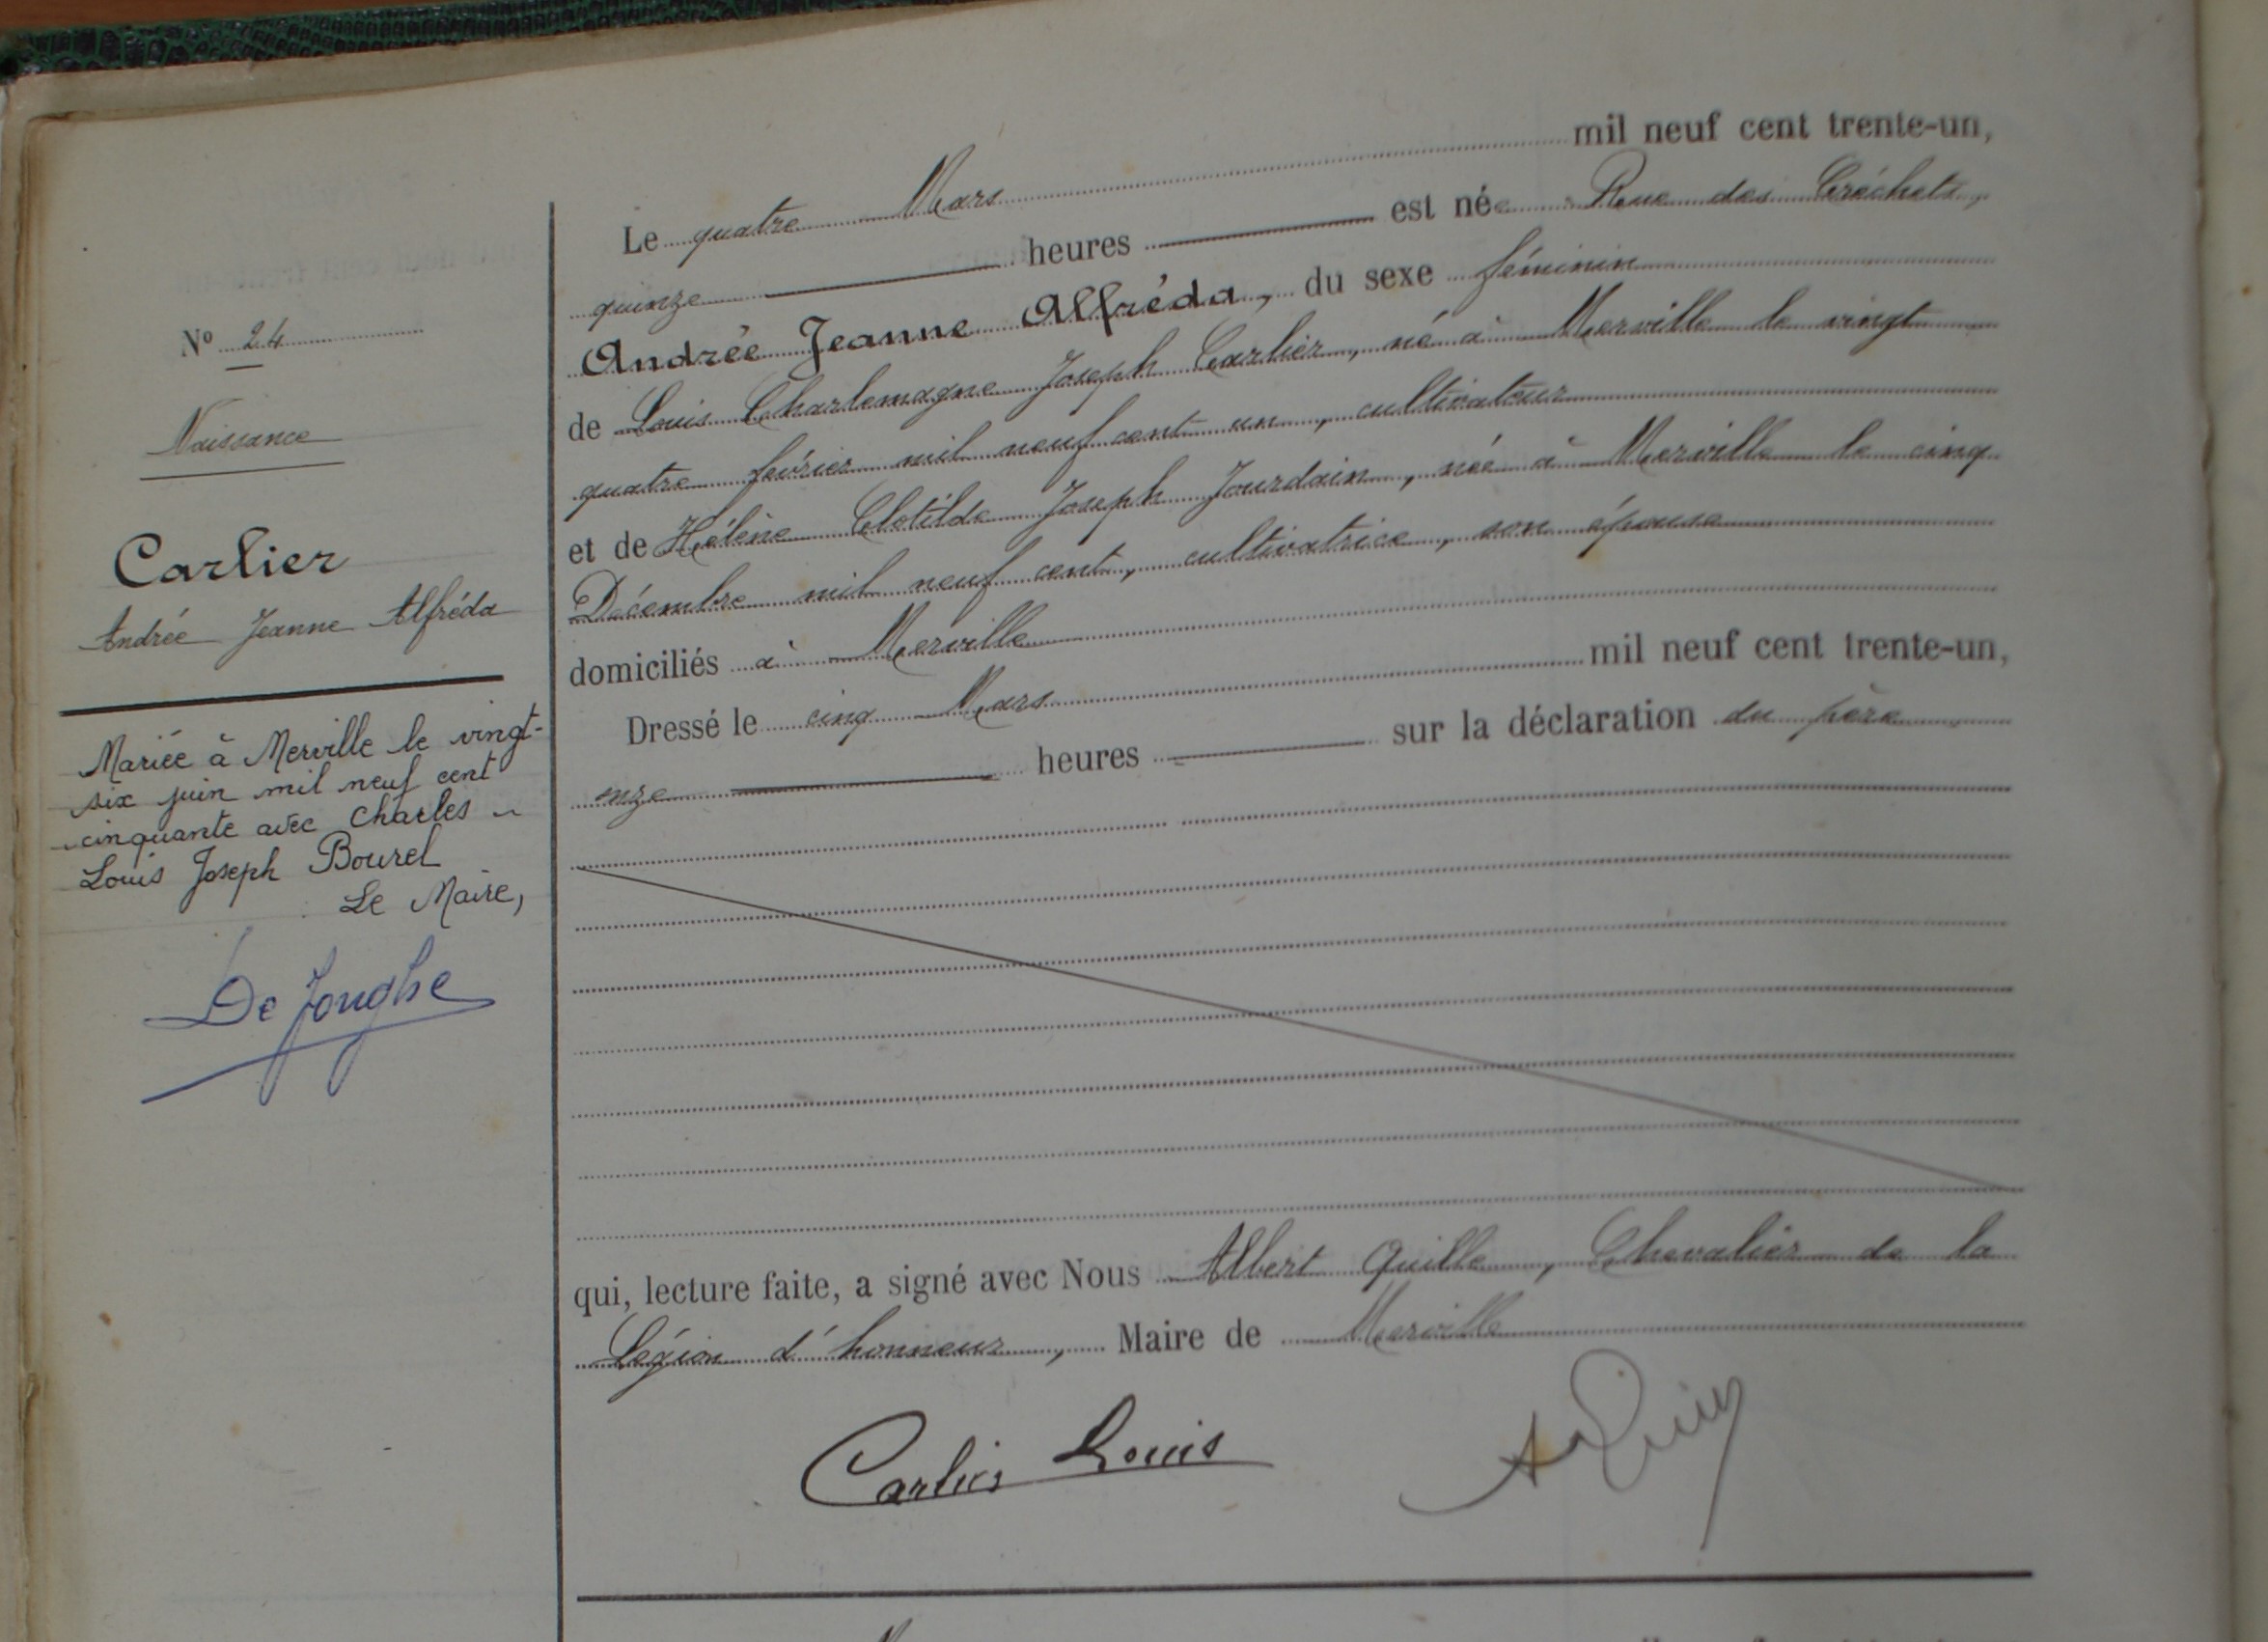 N° 24
Naissance
Carlier
Andrée Jeanne Alfréda
Mariée à Merville le vingt-
six juin mil neuf cent
cinquante avec Charles
Louis Joseph Bourel
Le Maire,
De Jonghe
Le quatre Mars mil neuf cent trente-un,
quinze heures est née Rue des Créchets,
Andrée Jeanne Alfréda, du sexe féminin
de Louis Charlemagne Joseph Carlier, né à Merville le vingt
quatre février mil neuf cent un, cultivateur
et de Hélène Clotilde Joseph Jourdain, née à Merville le cinq
Décembre mil neuf cent, cultivatrice, son épouse
domiciliés à Merville
Dressé le cinq Mars mil neuf cent trente-un,
onze heures sur la déclaration du père
qui, lecture faite, a signé avec Nous Albert Quille, Chevalier de la
Légion d'honneur, Maire de Merville
Carlier Louis